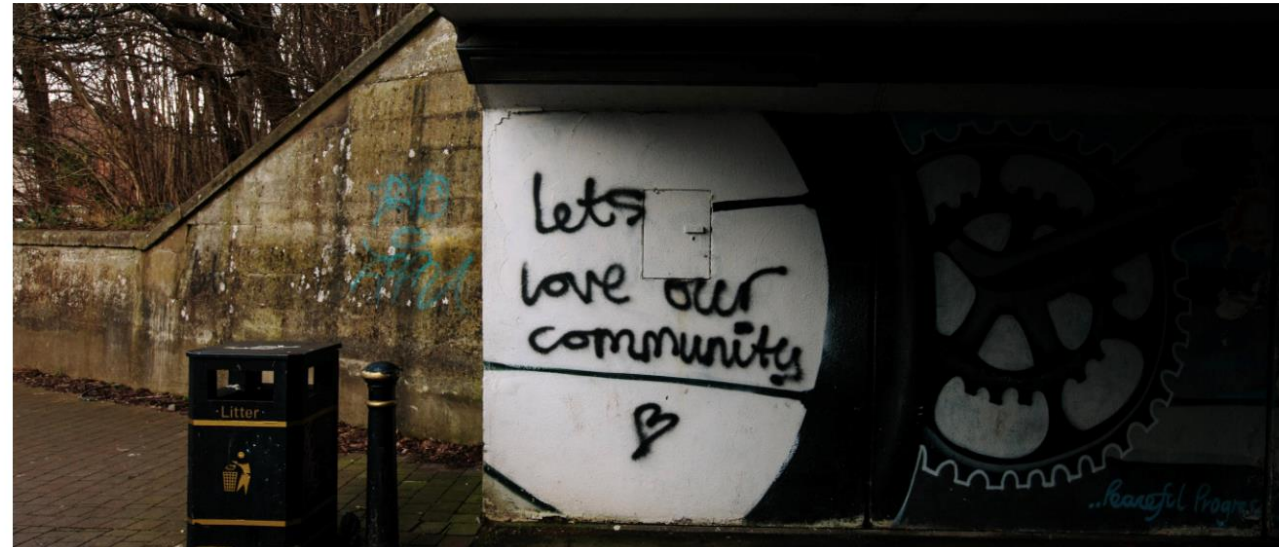 lets
love our
community
Litter
...Peaceful Progress